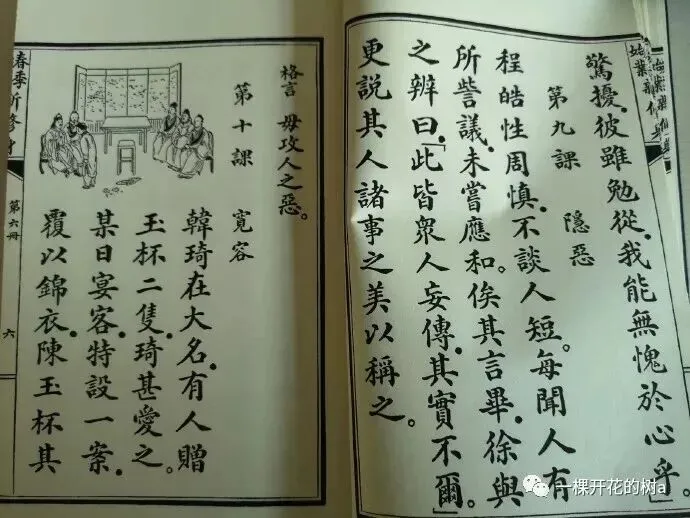 驚擾.彼雖勉從.我能無愧於心乎」。
第九課　隱惡
程皓性周慎.不談人短。每聞人有
所訾議.未嘗應和.俟其言畢.徐與
之辨曰.「此皆衆人妄傳.其實不爾」.
更説其人諸事之美以稱之。
格言　毋攻人之惡。
第十課　寬容
韓琦在大名.有人贈
玉杯二隻.琦甚愛之。
某日宴客.特設一案.
覆以錦衣.陳玉杯其
春季所修身
第六冊
六
一棵开花的树a